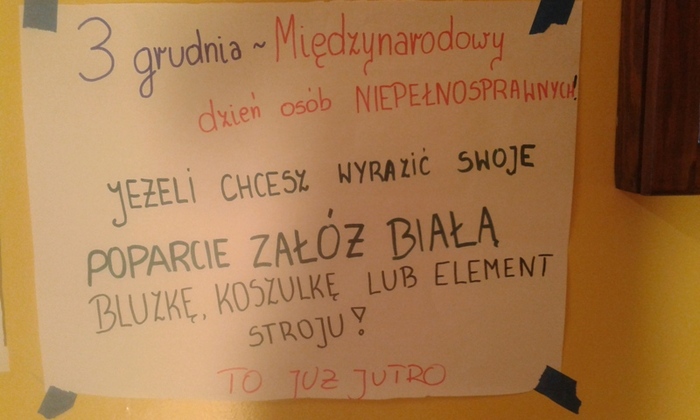 3 grudnia ~ Międzynarodowy
dzień osób NIEPEŁNOSPRAWNYCH!
JEŻELI CHCESZ WYRAZIĆ SWOJE
POPARCIE ZAŁÓŻ BIAŁĄ
BLUZKĘ, KOSZULKĘ LUB ELEMENT
STROJU!
TO JUŻ JUTRO